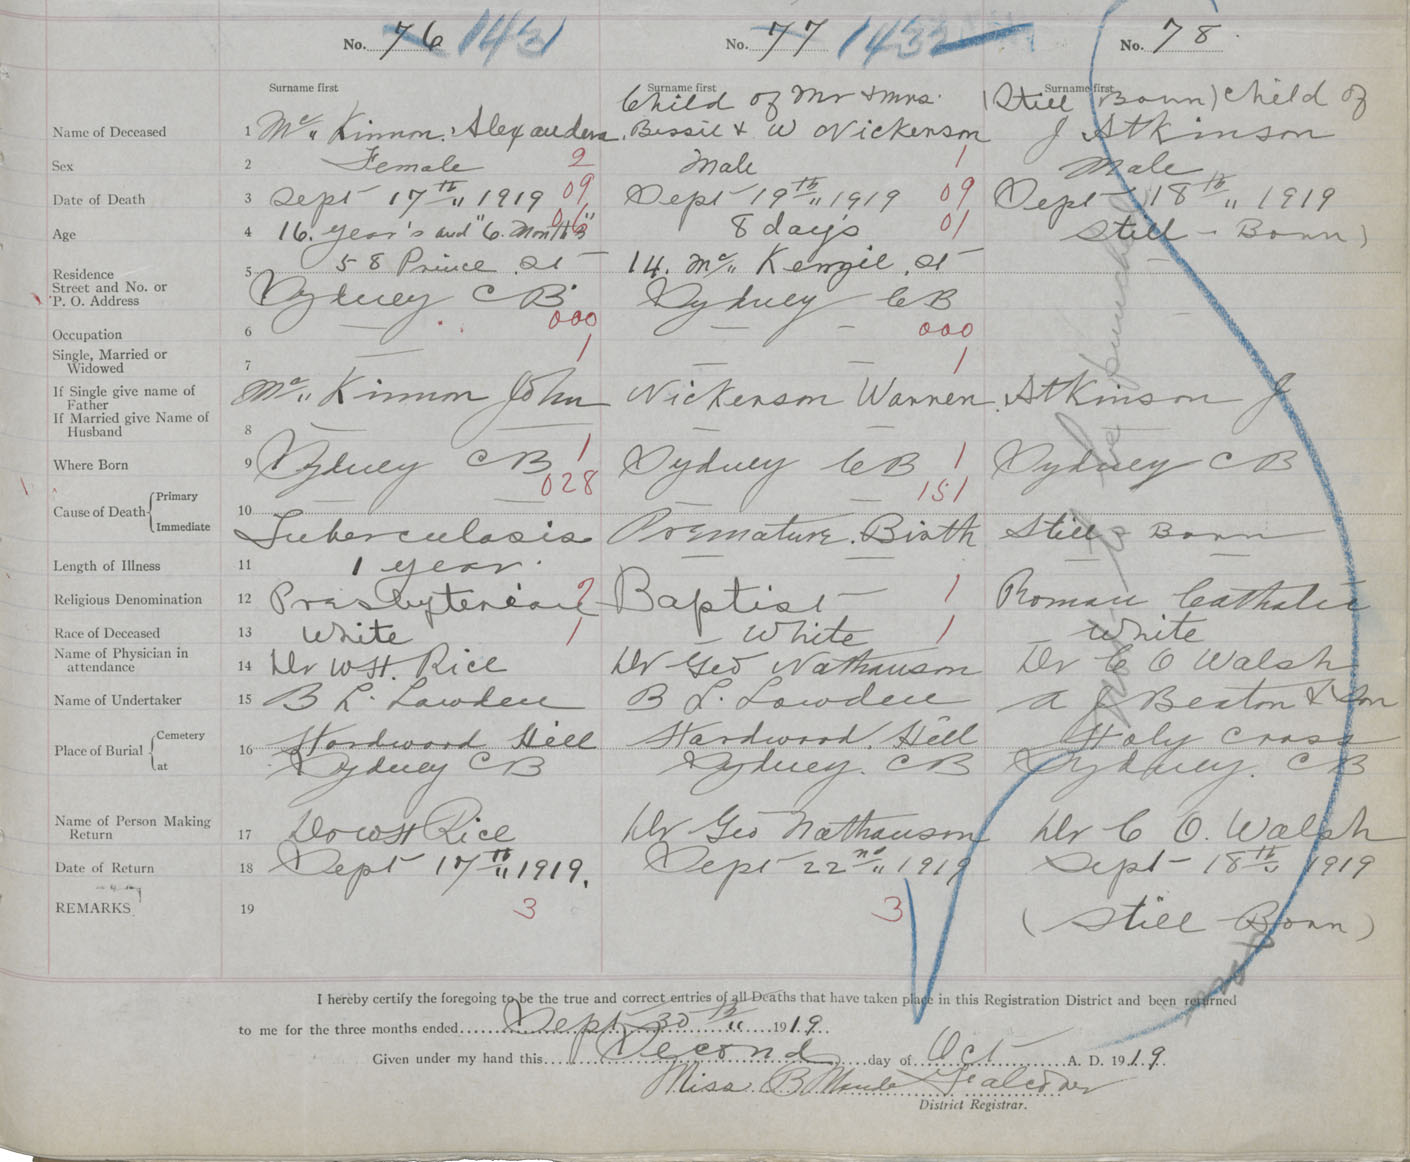 No. 76 1431 No. 77 1432 No. 78
Surname first Surname first Surname first
Child of Mr & Mrs. (Still Born) Child of
Name of Deceased 1 Mc" Kinnon. Alexandera. Bessie & W Nickerson J Atkinson
Sex 2 Female 2 Male 1 Male
Date of Death 3 Sept 17th" 1919 09 Sept 19th" 1919 09 Sept 18th" 1919
Age 4 16. year's and "6. Months" 06 8 days 01 Still - Born)
Residence 5 58 Prince St 14. Mc" Kenzie. St
Street and No. or
P. O. Address Sydney C B. Sydney C B
Occupation 6 — 000 — 000
Single, Married or
Widowed 7 — 1 — 1
If Single give name of
Father Mc" Kinnon John Nickerson Warren. Atkinson J
If Married give Name of
Husband 8
Where Born 9 Sydney C B 1 Sydney C B 1 Sydney C B
Cause of Death Primary 10 028 151
Immediate Tuberculosis Premature. Birth Still Born
Length of Illness 11 1 year.
Religious Denomination 12 Presbyterian 2 Baptist 1 Roman Catholic
Race of Deceased 13 White 1 White 1 White
Name of Physician in
attendance 14 Dr W H. Rice Dr Geo Nathanson Dr C O Walsh
Name of Undertaker 15 B L. Lowden B L. Lowden A J Beaton & Son
Place of Burial Cemetery 16 Hardwood Hill Hardwood. Hill Holy Cross
at Sydney C B Sydney. C B Sydney. C B
Name of Person Making
Return 17 Dr W H Rice Dr Geo Nathanson Dr C O. Walsh
Date of Return 18 Sept 17th" 1919. Sept 22nd" 1919 Sept 18th" 1919
REMARKS 19 3 3 (Still Born)
not to be punched
I hereby certify the foregoing to be the true and correct entries of all Deaths that have taken place in this Registration District and been returned
to me for the three months ended Sept. 30th" 1919.
Given under my hand this Second day of Oct A. D. 1919.
Miss. B Maude Falconer
District Registrar.